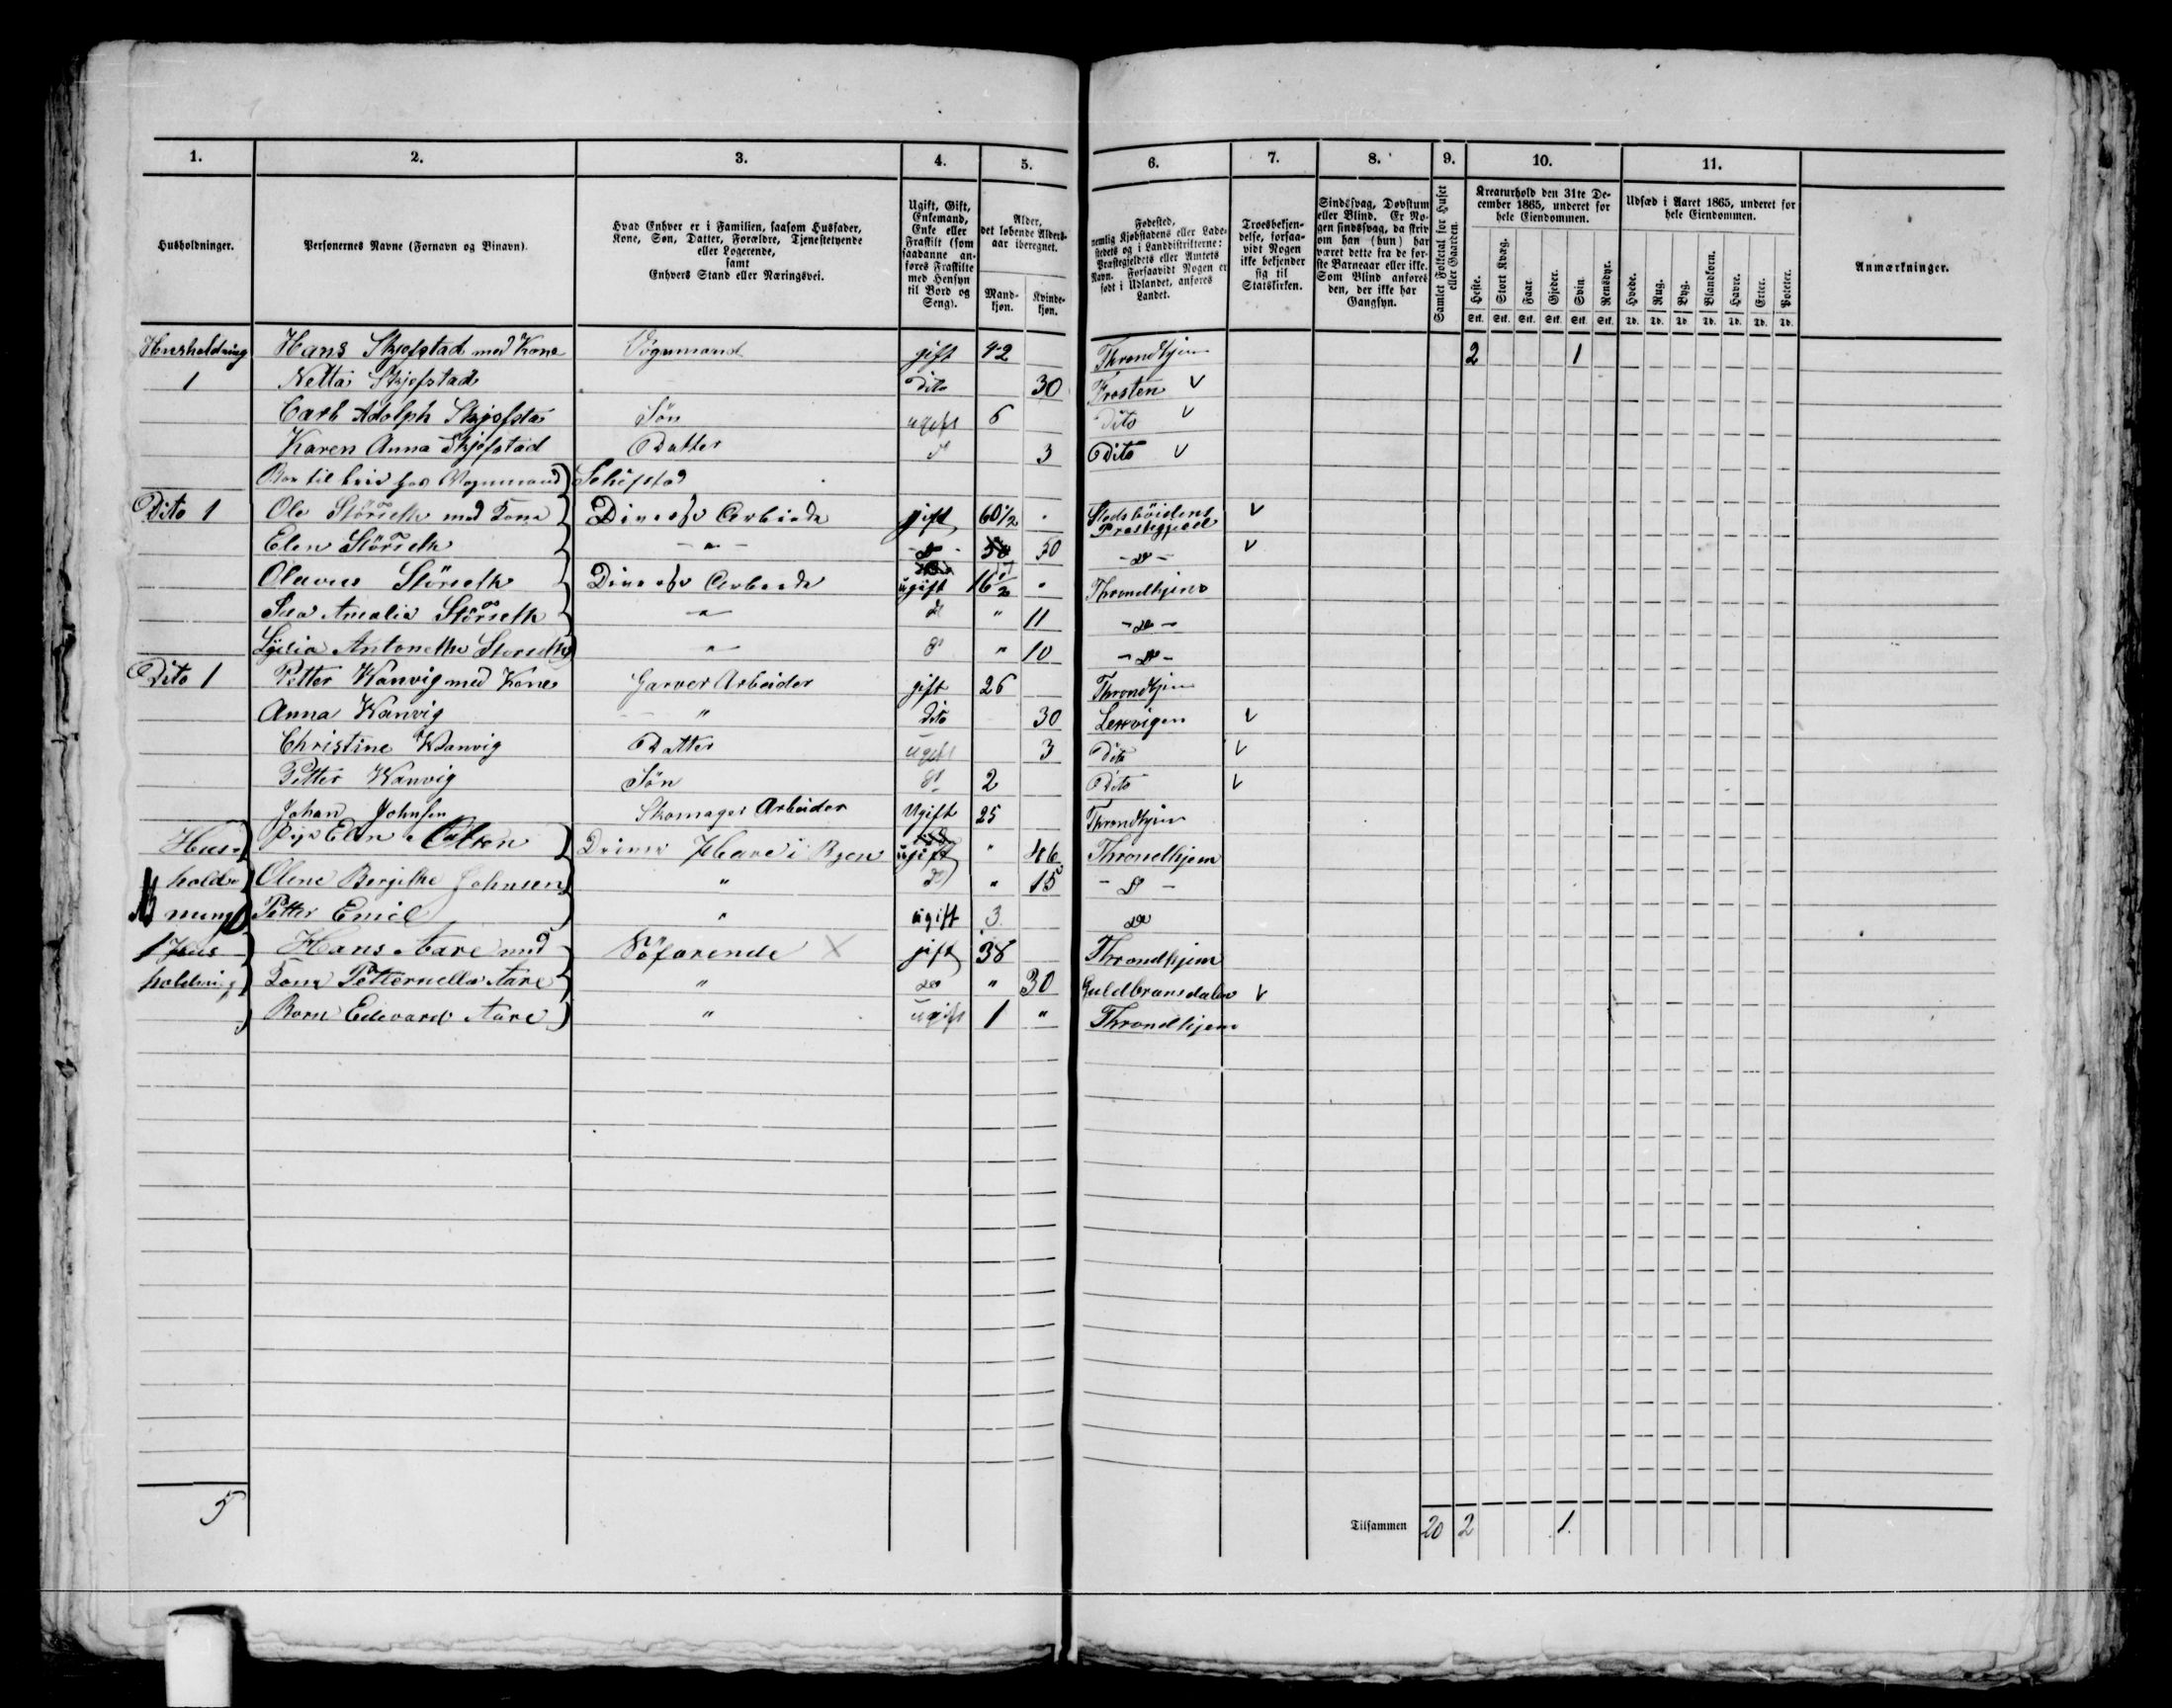 1. 2. 3. 4. 5. 6. 7. 8. 9. 10. 11.
Husholdninger.
Personernes Navne (Fornavn og Binavn).
Hvad Enhver er i Familien, saasom Husfader,
Kone, Søn, Datter, Forældre, Tjenestetyende
eller Logerende,
samt
Enhvers Stand eller Næringsvei.
Ugift, Gift,
Enkemand,
Enke eller
Fraskilt (som
saadanne an-
føres Fraskilte
med Hensyn
til Bord og
Seng).
Alder,
det løbende Alders-
aar iberegnet.
Mand-
kjøn.
Kvinde-
kjøn.
Fødested,
nemlig Kjøbstadens eller Lade-
stedets og i Landdistrikterne:
Præstegjeldets eller Amtets
Navn. Forsaavidt Nogen er
født i Udlandet, anføres
Landet.
Troesbekjen-
delse, forsaa-
vidt Nogen
ikke bekjender
sig til
Statskirken.
Sindssvag, Døvstum
eller Blind. Er No-
gen sindssvag, da skriv
om han (hun) har
været dette fra de før-
ste Barneaar eller ikke.
Som Blind anføres
den, der ikke har
Gangsyn.
Samlet Folketal for Huset
eller Gaarden.
Kreaturhold den 31te De-
cember 1865, underet for
hele Eiendommen.
Heste. Stort Kvæg. Faar. Gjeder. Svin. Rensdyr.
Stk. Stk. Stk. Stk. Stk. Stk.
Udsæd i Aaret 1865, underet for
hele Eiendommen.
Hvede. Rug. Byg. Blandkorn. Havre. Erter. Poteter.
Td. Td. Td. Td. Td. Td. Td.
Anmærkninger.
Husholdning Hans Skjefstad med Kone Vognmand gift 42 Throndhjem 2 1
1 Netta Skjefstad dito 30 Frosten v
Carl Adolph Skjefsta Søn ugift 6 Dito v
Karen Anna Skjefstad Datter do 3 Dito v
Vognmand Schifstad
Dito 1 Ole Störseth med Kone Diverse Arbeide gift 60 1/2 Stadsböidens v
Prestegjeld
Elen Störseth - " - do 50 - do - v
Olavus Störseth Diverse Arbeide ugift 16 1/2 Throndhjem
Amalia Störseth - " - do " 11 - do -
Antonethe Storseth - " - do " 10 - do -
Dito 1 Petter Wanvig med Kone Garver Arbeider gift 26 Throndhjem
Anna Wanvig " dito 30 Lexvigen v
Christine Wanvig Datter ugift 3 Dito v
Petter Wanvig Søn do 2 Dito v
Johan Johnsen Skomager Arbeider Ugift 25 Throndhjem
Hus= Elen Driver i Byen ugift " 46 Throndhjem
hold= Oline Bergithe Johnsen " do " 15 - do -
ning Petter Emil " ugift 3 do
1 Hus Hans Aare med Söfarende X gift 38 Throndhjem
holdning Kone Petternella Aare " do " 30 Guldbransdalen v
Barn Edevard Aare " ugift 1 " Throndhjem
5 Tilsammen 20 2 1.